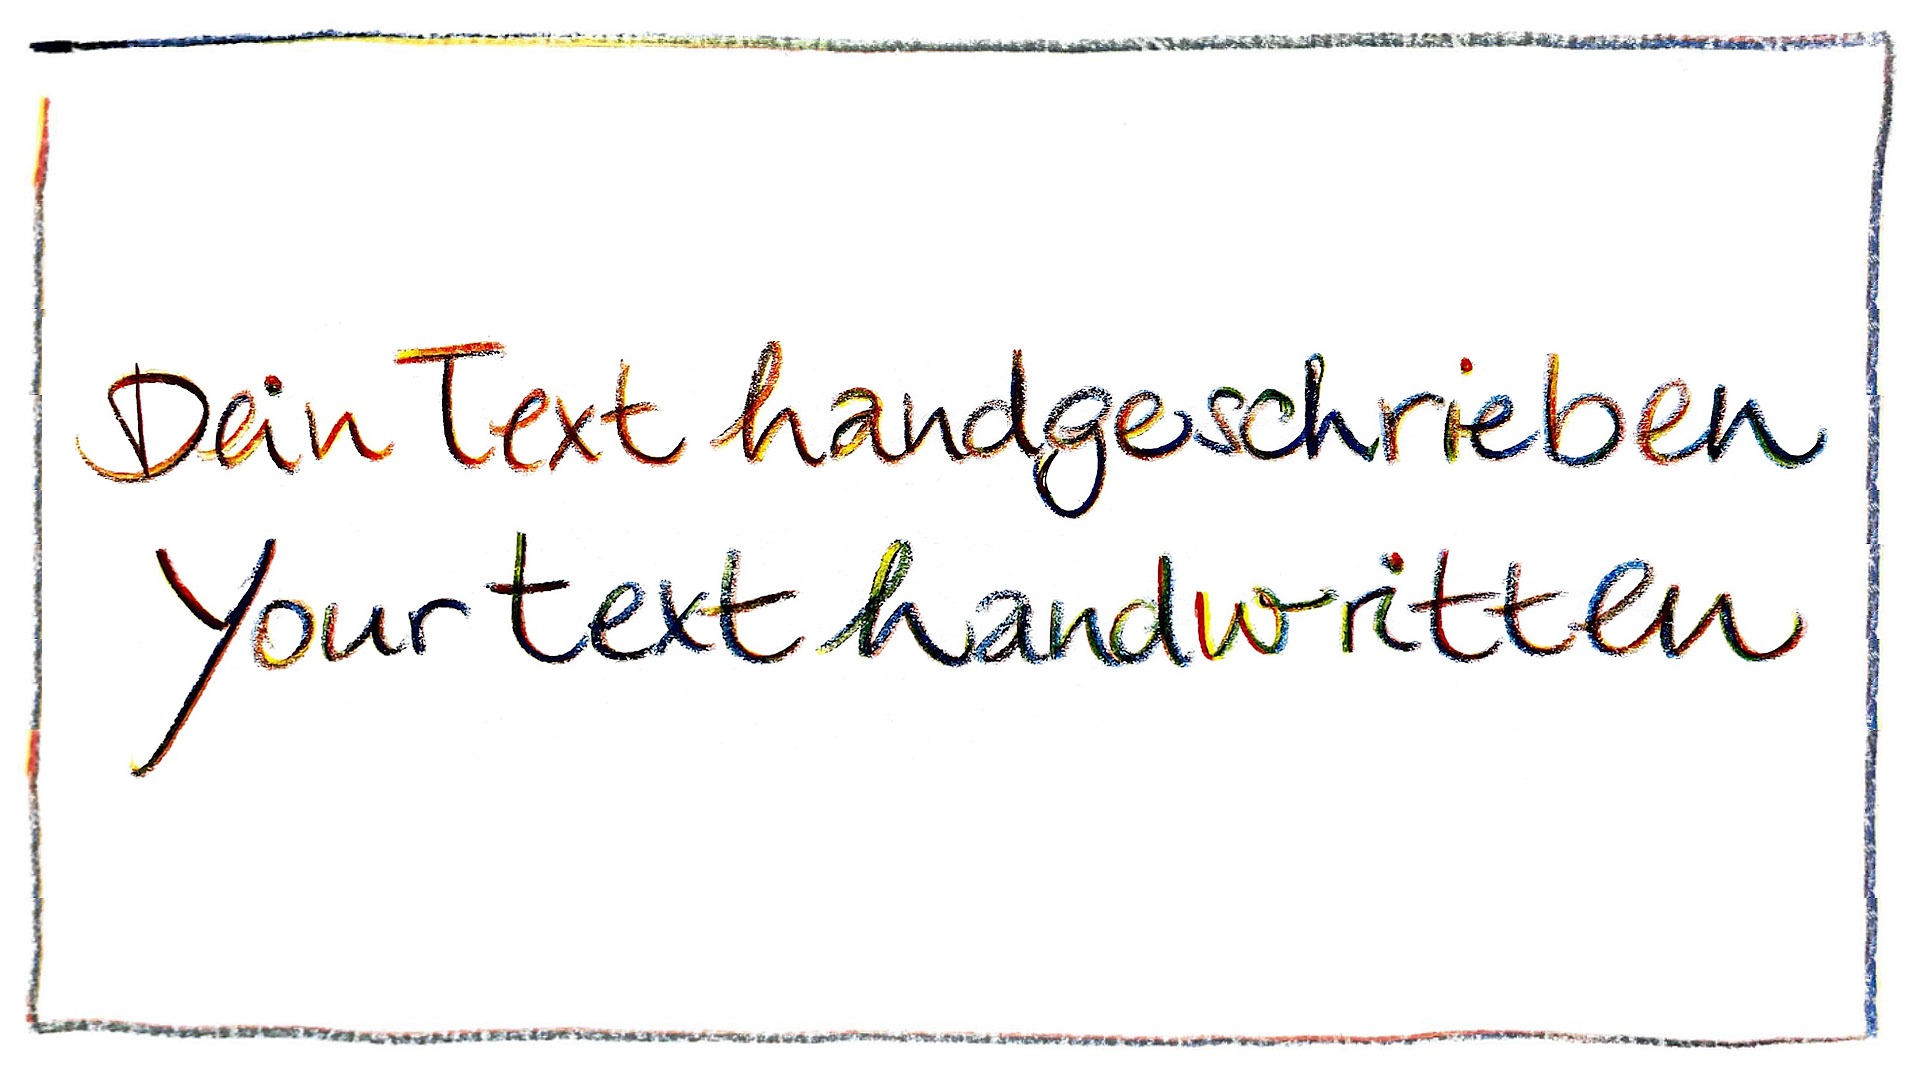 Dein Text handgeschrieben
Your text handwritten